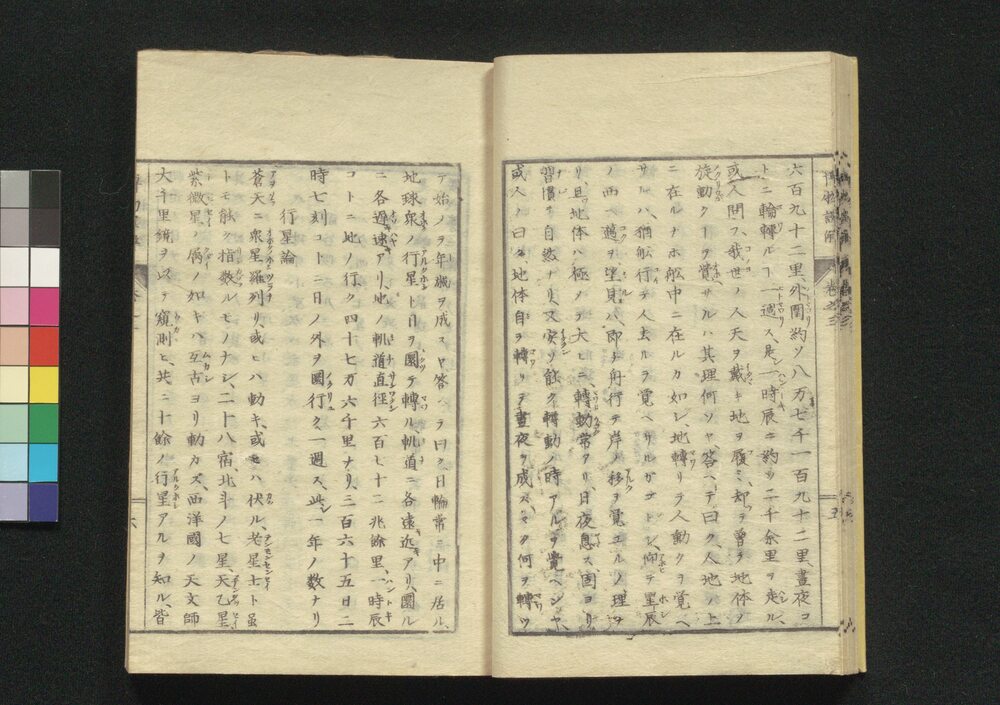 六百九十二里、外圍約ソ八万七千一百九十二里、晝夜コ
トニ輪轉ルヿ一週ス、是一時辰ニ約ソ二千余里ヲ走ル、
或人問フ、我世ノ人天ヲ戴キ地ヲ履ミ、却テ曾テ地体ノ
旋動クヿヲ覺サルハ其理何ソヤ、答ヘテ曰ク、人地ノ上
ニ在ルナホ舩中ニ在ルカ如シ、地轉リテ人動クヲ覺ヘ
サルハ、猶舩行テ人去ルヲ覺ヘサルガゴトシ、仰テ星辰
ノ西ヘ ヲ望見ハ即チ舟行テ岸ノ移ヲ覺ユルノ理ナ
リ、且地体ハ極メテ大ヒニ、轉動常アリ、日夜息ス、固ヨリ
習慣テ自然ナリ、又安ソ能ク轉動ノ時アルヲ覺ヘンヤ、
或人ノ曰ク、地体自ラ轉リテ晝夜ヲ成ス、マタ何ヲ轉ツ
テ始ノテ年歲ヲ成スヤ答ヘテ曰ク日輪常ニ中ニ居ル、
地球衆ノ行星ト日ヲ圜テ轉ル、軌道ニ各遠近アリ、圜ル
ニ各遲速アリ、地ノ軌道直徑六百七十二兆餘里、一時辰
コトニ地ノ行ク四十七万六千里ナリ、三百六十五日二
時七刻コトニ日ノ外ヲ圜行ク一週ス、此一年ノ数ナリ
行星論
蒼天ニ衆星羅列リ、或ヒハ動キ、或ヒハ伏ル、老星士ト虽
トモ能ク指数ルモノナシ、二十八宿、北斗ノ七星、天乙星、
紫微星ノ属ノ如キハ亙古ヨリ動カズ、西洋國ノ天文師
大千里鏡ヲ以テ窺測ヒ、共ニ十餘ノ行星アルヲ知ル、皆